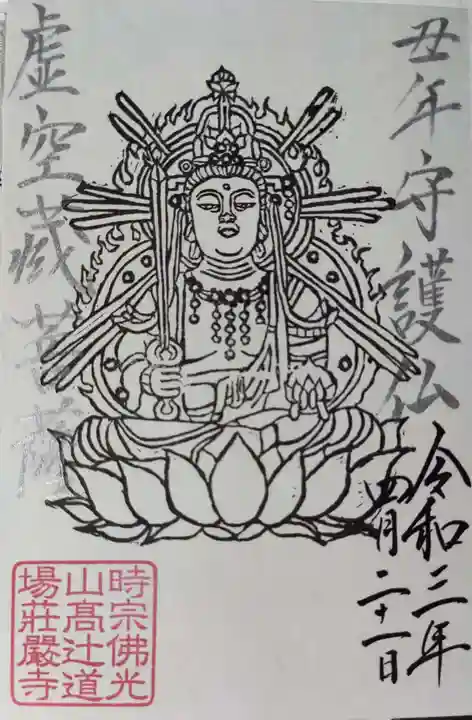 丑年守護仏
虚空蔵菩薩
令和三年
四月二十一日
時宗佛光
山髙辻道
場莊嚴寺